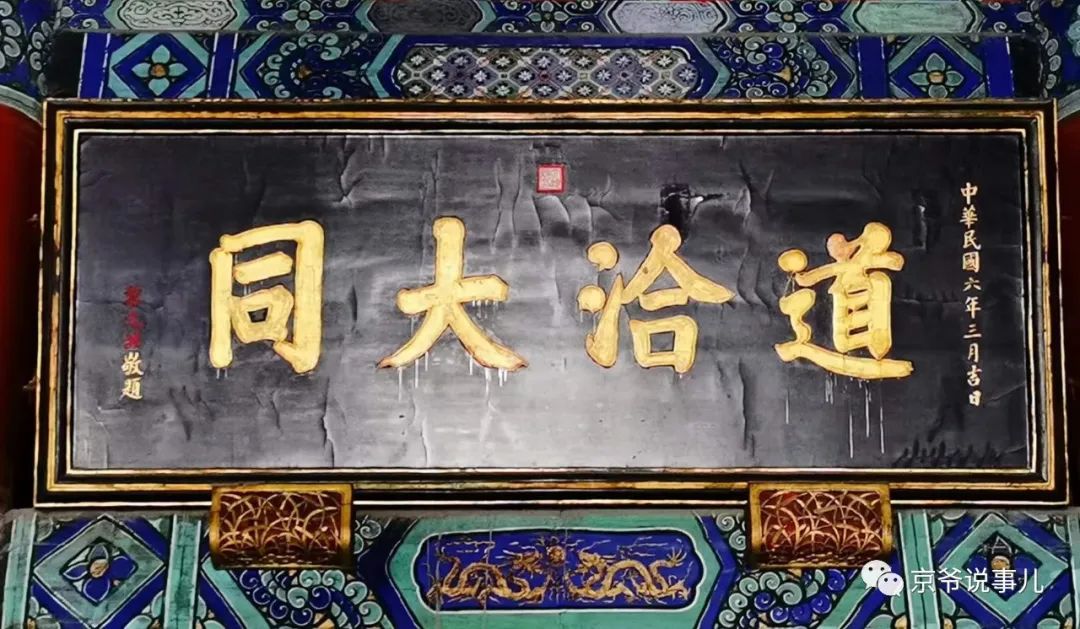 中華民國六年三月吉日
道洽大同
黎元洪敬題
京爷说事儿